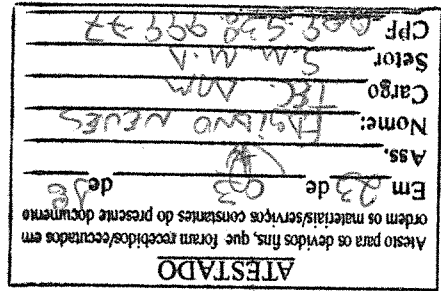 ATESTADO
Atesto para os devidos fins, que foram recebidos/executados em
ordem os materiais/serviços constantes do presente documento
Em 23 de 03 de
Ass.
Nome: FABIANO NEVES
Cargo TEC. ADM
Setor S.M.M.A
CPF 009.538.999-77